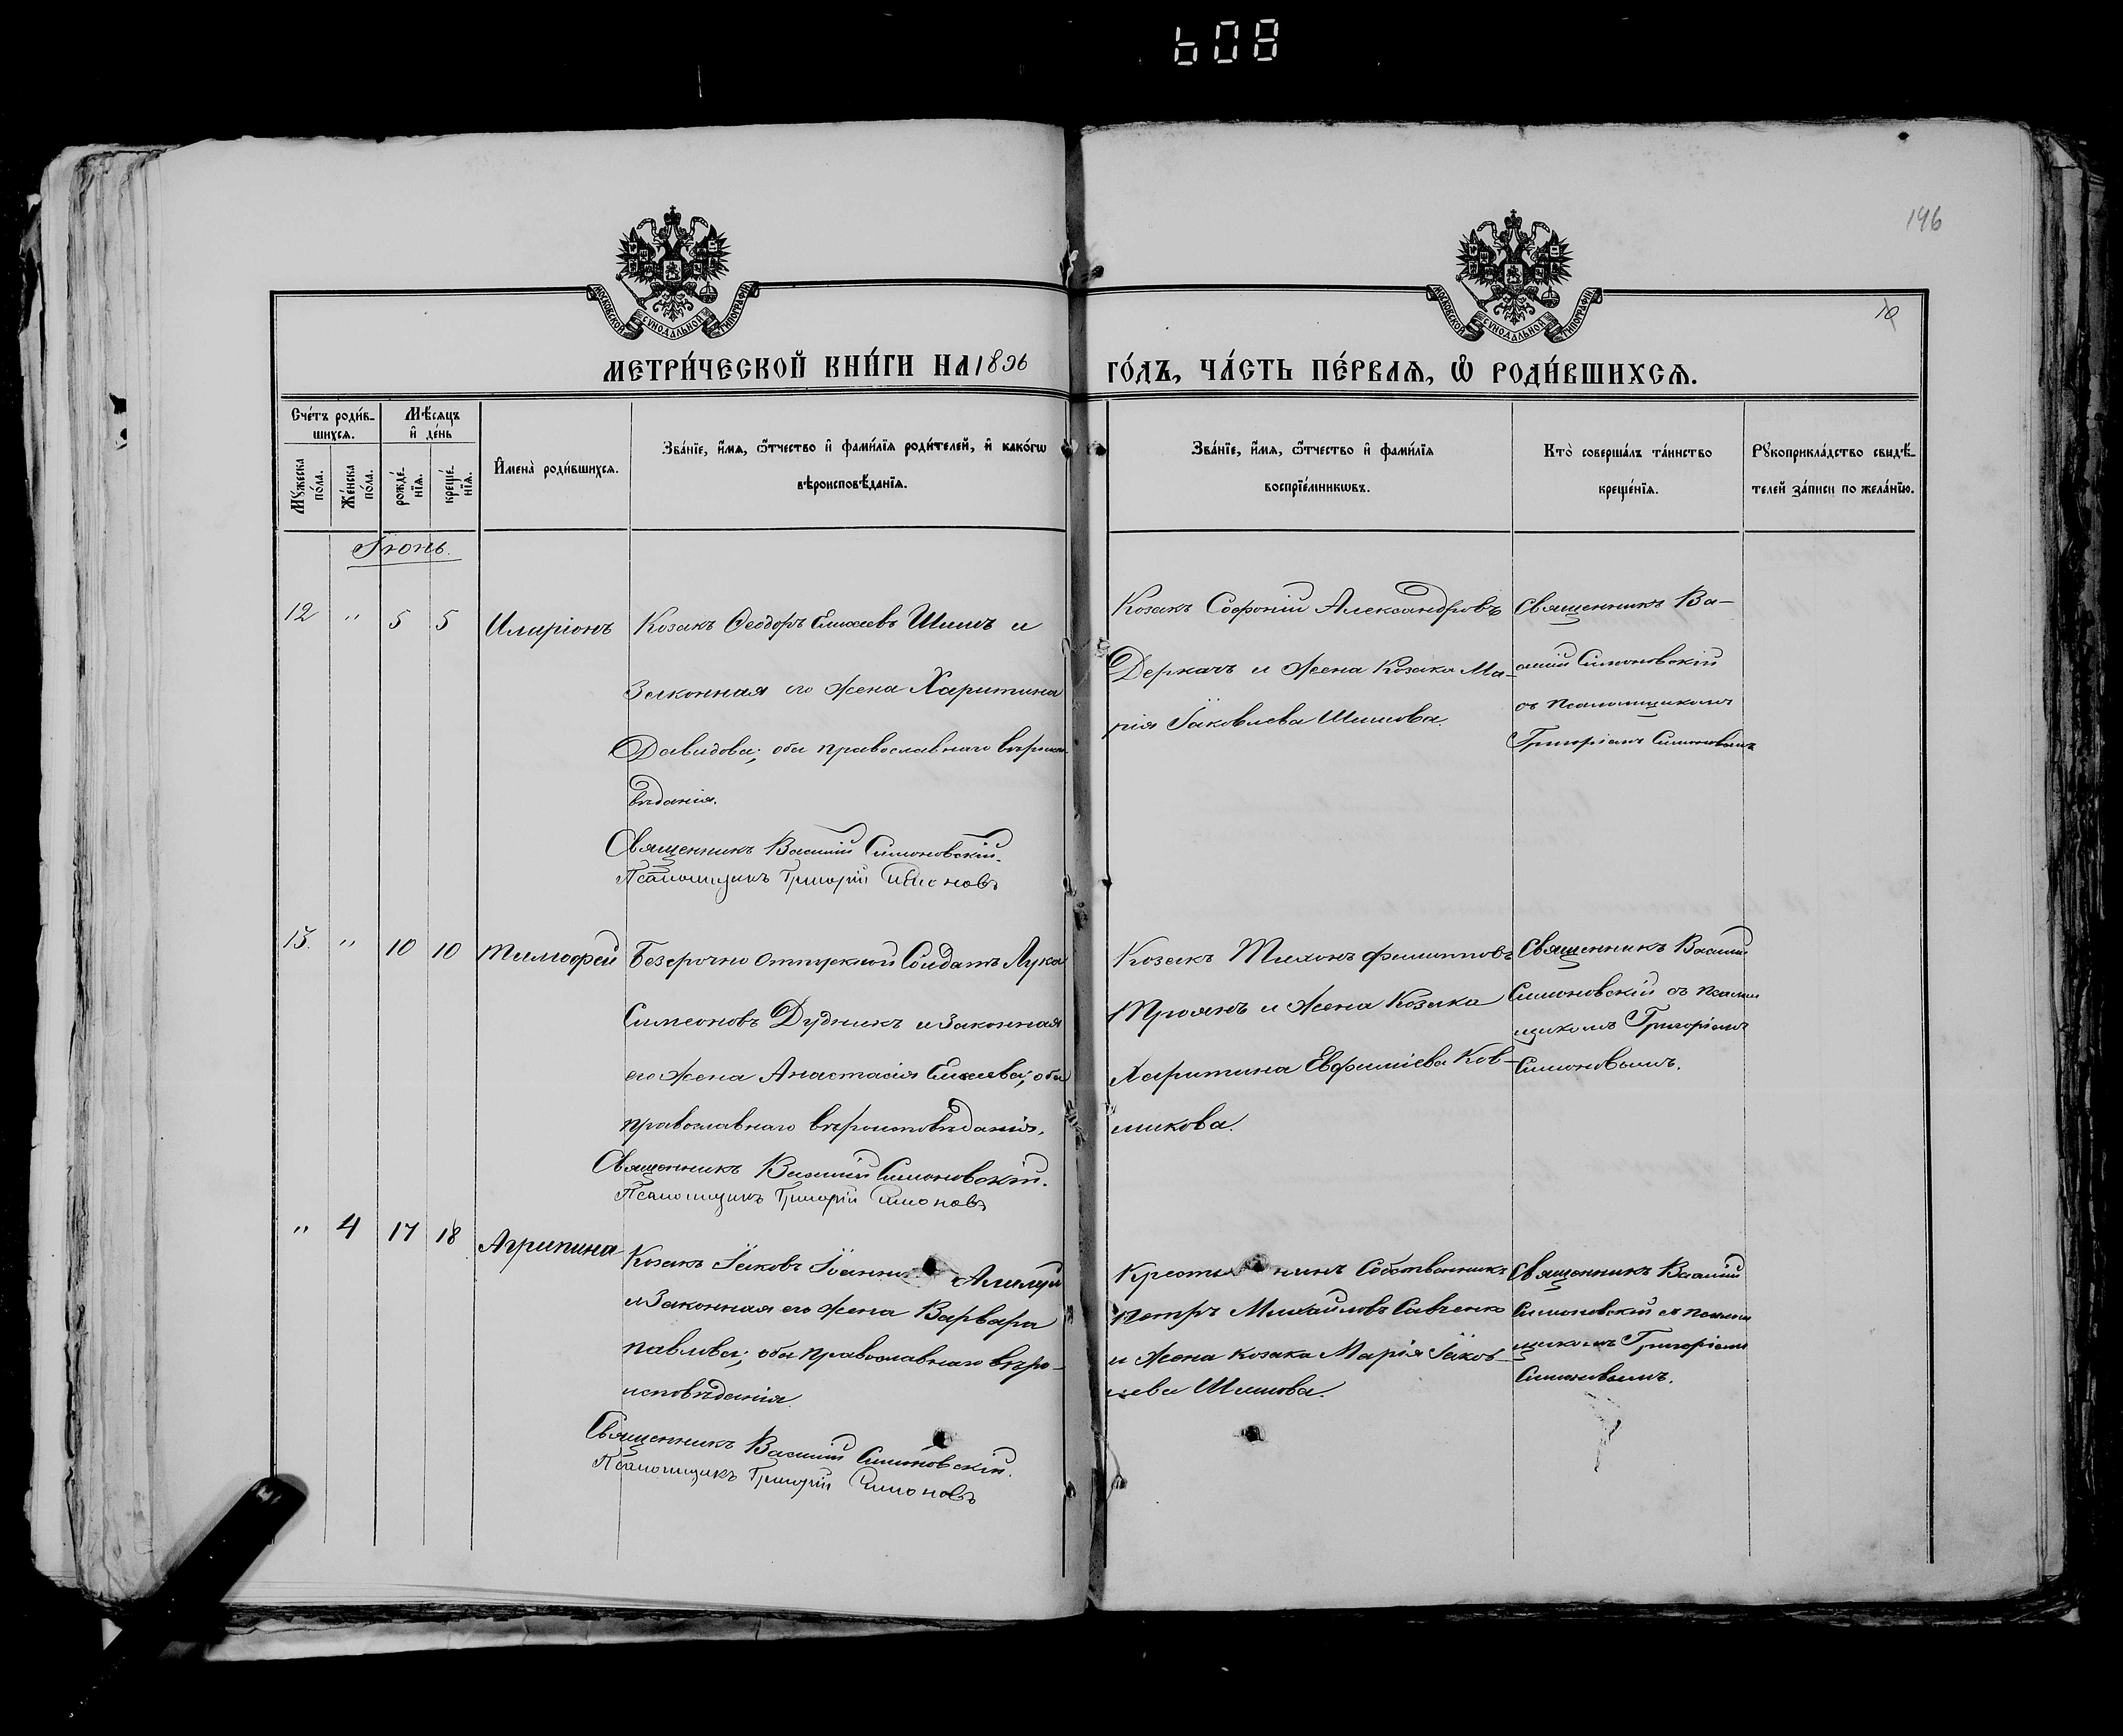 608
196
10
МОСКОВСКОЙ СѴНОДАЛЬНОЙ ТИПОГРАФІИ
МОСКОВСКОЙ СѴНОДАЛЬНОЙ ТИПОГРАФІИ
МЕТРИ́ЧЕСКОЙ КНИ́ГИ НА 1896 ГО́ДЪ, ЧА́СТЬ ПЕ́РВАѦ, Ѽ РОДИ́ВШИХСѦ.
Сче́тъ роди́в-
шихсѧ.
Мѣ́сѧцъ
и҆ де́нь
Мꙋ́жеска
по́ла.
Же́нска
по́ла.
рожде́-
нїѧ.
креще́-
нїѧ.
И҆мена̀ роди́вшихсѧ.
Зва́нїе, и҆́мѧ, ѻ҆́тчество и҆ фами́лїѧ роди́телей, и҆ како́гѡ
вѣроисповѣ́данїѧ.
Зва́нїе, и҆́мѧ, ѻ҆́тчество и҆ фами́лїѧ
воспрїе́мникѡвъ.
Кто̀ соверша́лъ та́инство
креще́нїѧ.
Рꙋкоприкла́дство свидѣ́-
телей за́писи по жела́нїю.
Іюнь.
12 " 5 5 Иларіонъ
Козакъ Ѳеодоръ Елисеевъ Шишъ и
Законная его жена Харитина
Давидова; оба православнаго вѣроиспо-
вѣданія.
Священникъ Василій Симоновскій.
Псаломщикъ Григорій Симоновъ
Козакъ Софроній Александровъ
Деркачъ и жена Козака Ма-
рія Іаковлева Шишова.
Священникъ Ва-
силій Симоновскій
съ псаломщикомъ
Григоріемъ Симоновымъ
13. " 10 10 Тимофей
Безсрочно отпускной Солдатъ Лука
Симеоновъ Дудникъ и Законная
его жена Анастасія Елисеева; оба
православнаго вѣроисповѣданія.
Священникъ Василій Симоновскій.
Псаломщикъ Григорій Симоновъ
Козакъ Тихонъ Филипповъ
Троянъ и жена Козака
Харитина Евфиміева Ков-
шикова.
Священникъ Василій
Симоновскій съ псалом
щикомъ Григоріемъ
Симоновымъ.
" 4 17 18 Агрипина
Козакъ Іаковъ Іоанно
и Законная его жена Варвара
Павлова; оба православнаго вѣро-
исповѣданія.
Священникъ Василій Симоновскій.
Псаломщикъ Григорій Симоновъ
Крестья нинъ Собственникъ
Петръ Михайловъ Савченко
и жена козака Марія Іаков-
лева Шишова.
Священникъ Василій
Симоновскій съ псалом
щикомъ Григоріемъ
Симоновымъ.